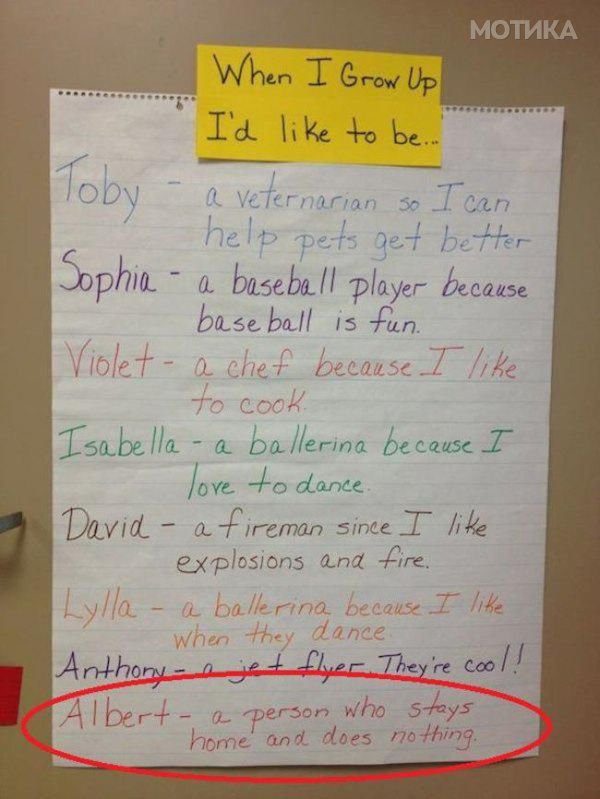 МОТИКА
When I Grow Up
I'd like to be...
Toby - a veternarian so I can
help pets get better
Sophia - a baseball player because
baseball is fun.
Violet - a chef because I like
to cook.
Isabella - a ballerina because I
love to dance.
David - a fireman since I like
explosions and fire.
Lylla - a ballerina because I like
when they dance.
Anthony - a jet flyer. They're cool!
Albert - a person who stays
home and does nothing.